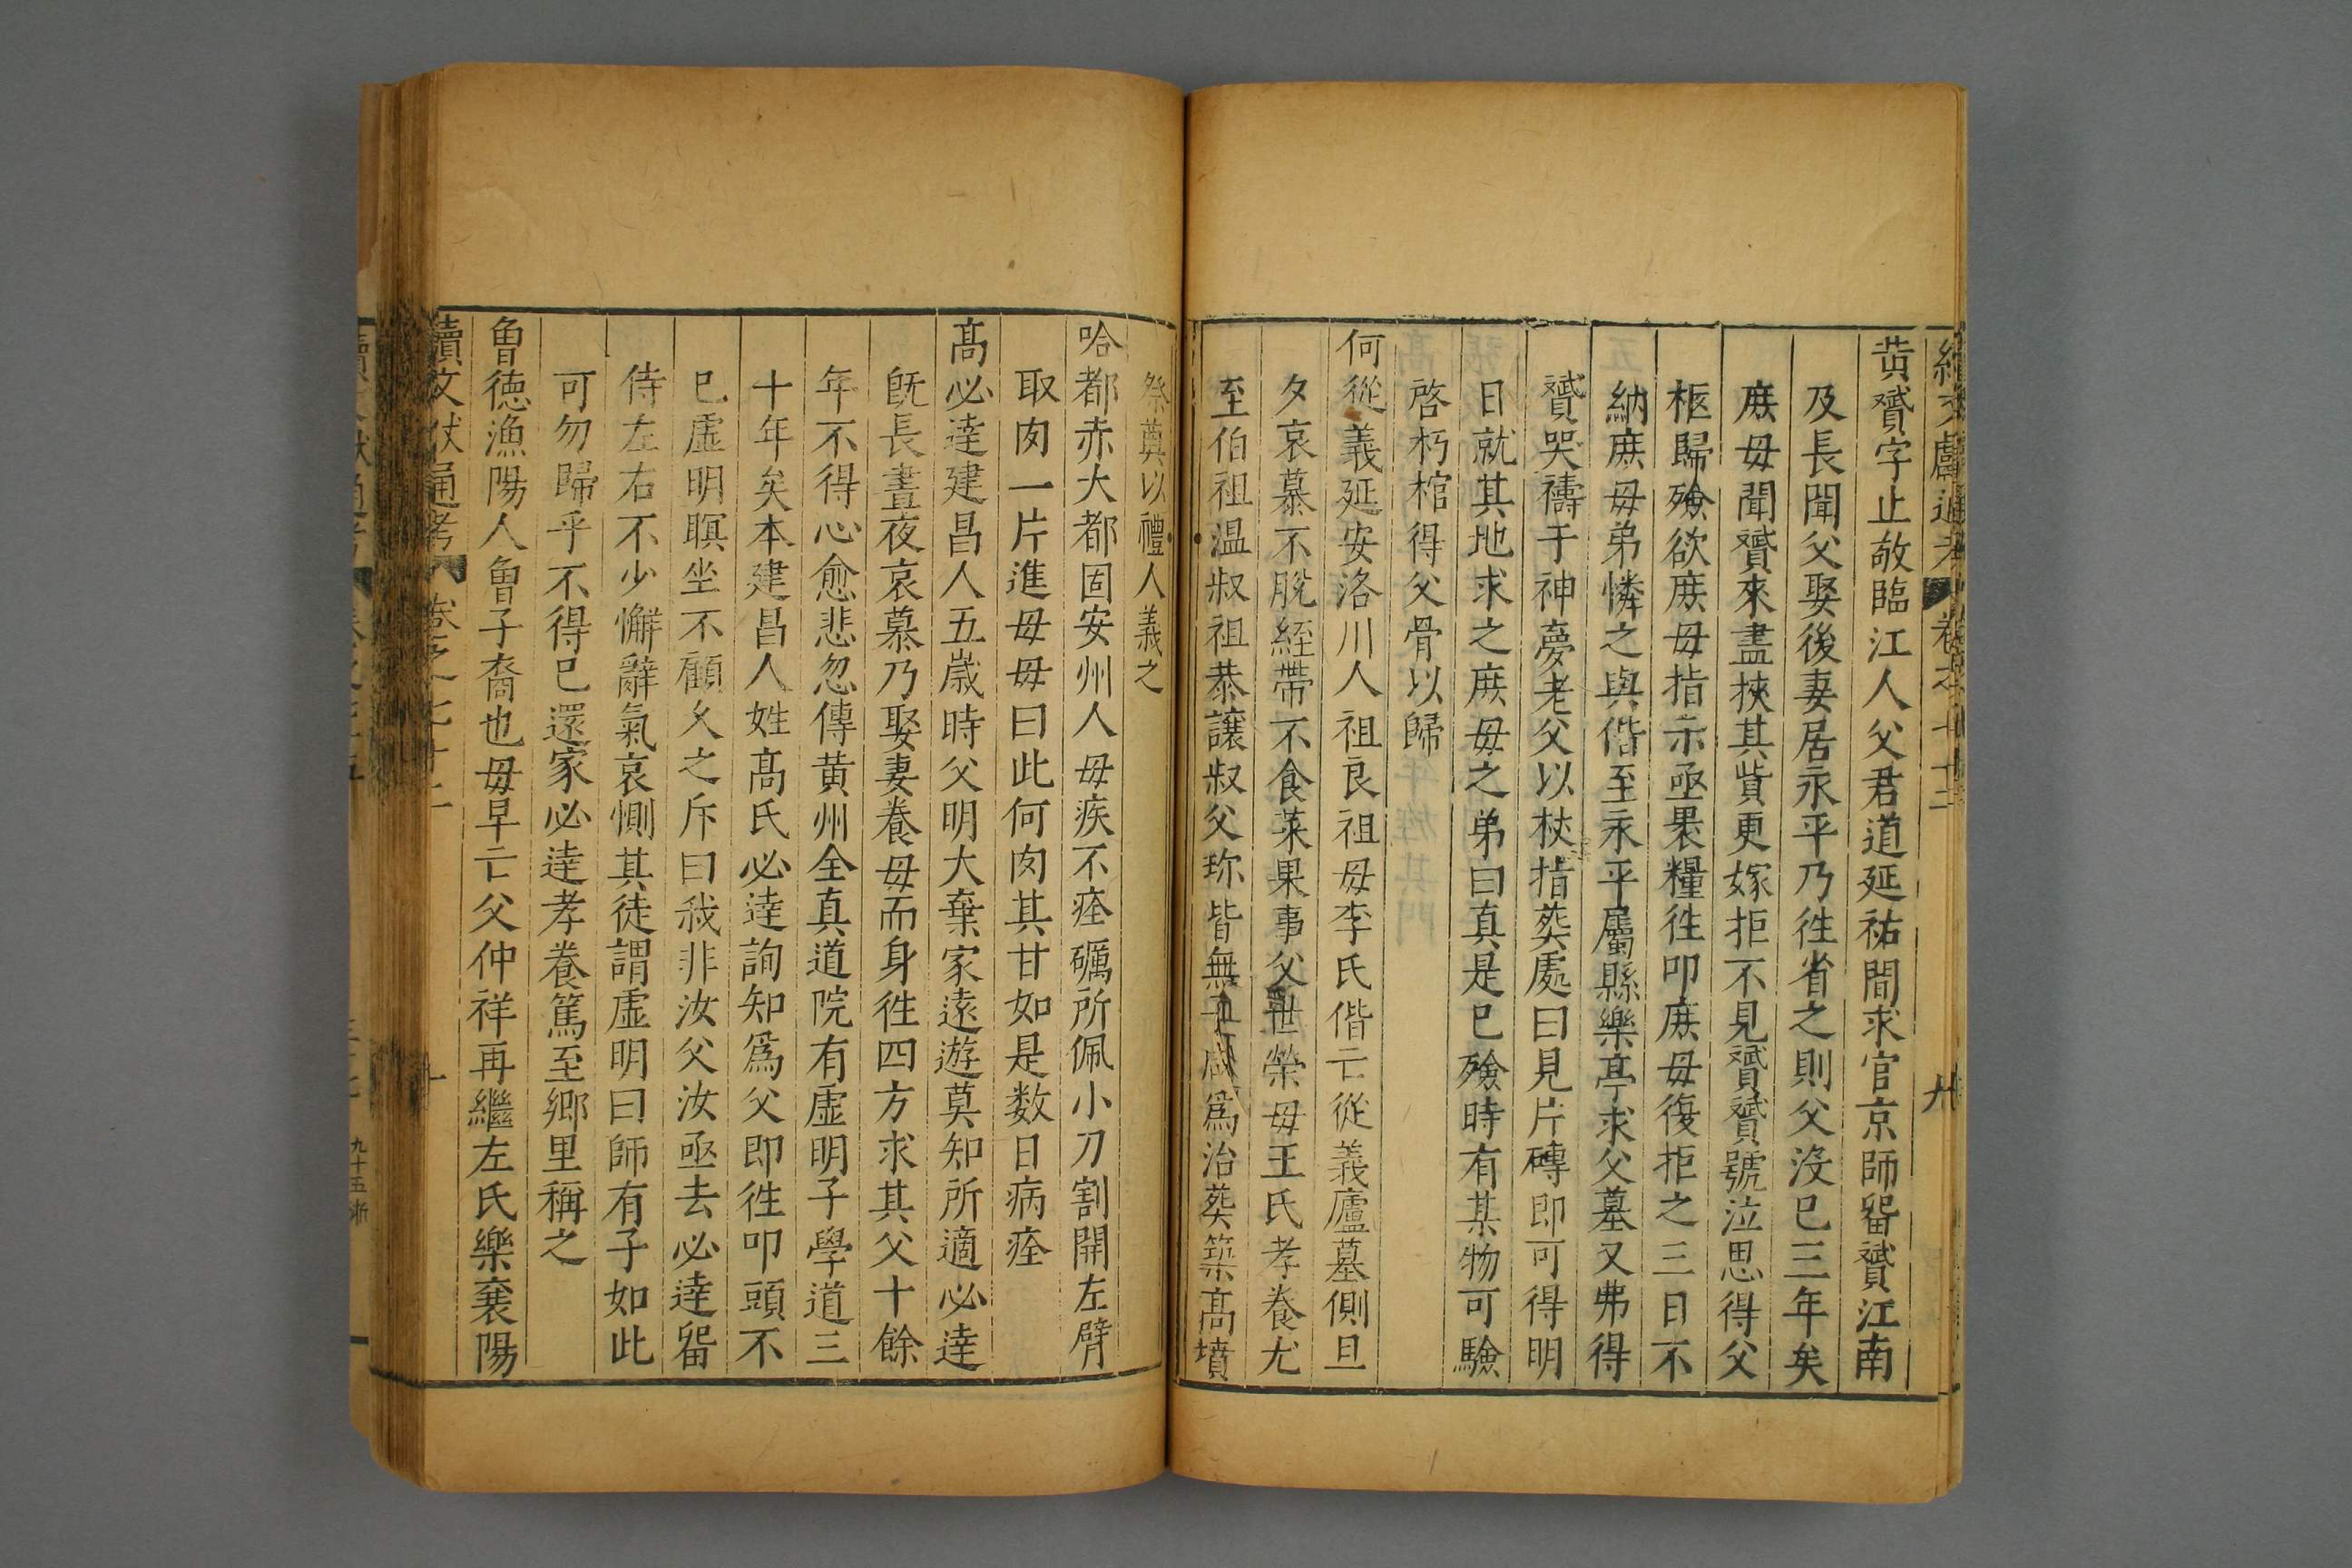 續文獻通考 卷之七十二
黄贇字止敬臨江人父君道延祐間求官京師畱贇江南
及長聞父娶後妻居永平乃徃省之則父沒巳三年矣
庶母聞贇來盡挾其貲更嫁拒不見贇贇號泣思得父
柩歸殮欲庶母指示亟褁糧徃叩庶母復拒之三日不
納庶母弟憐之與偕至永平屬縣樂亭求父墓又弗得
贇哭禱于神夢老父以杖指葬處曰見片磚即可得明
日就其地求之庶母之弟曰真是巳殮時有某物可驗
啓朽棺得父骨以歸
何從義延安洛川人祖良祖母李氏偕亡從義廬墓側旦
夕哀慕不脫絰帶不食菜果事父世榮母王氏孝養尤
至伯祖温叔祖恭讓叔父珎皆無子爲治葬築髙墳
祭奠以禮人義之
哈都赤大都固安州人母疾不痊礪所佩小刀割開左臂
取肉一片進母母曰此何肉其甘如是数日病痊
髙必逹建昌人五歳時父明大棄家逺遊莫知所適必逹
旣長晝夜哀慕乃娶妻養母而身徃四方求其父十餘
年不得心愈悲忽傳黄州全真道院有虛明子學道三
十年矣本建昌人姓髙氏必逹詢知爲父即徃叩頭不
巳虛明瞑坐不顧久之斥曰我非汝父汝亟去必逹畱
侍左右不少懈辭氣哀惻其徒謂虛明曰師有子如此
可勿歸乎不得巳還家必逹孝養篤至鄉里稱之
魯德漁陽人魯子裔也母早亡父仲祥再繼左氏樂襄陽
續文獻通考 卷之七十二
九十五浙